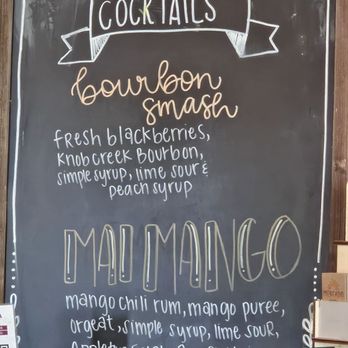 COCKTAILS
bourbon
smash
fresh blackberries,
Knob creek Bourbon,
simple syrup, lime sour &
peach syrup
MAD MANGO
mango chili rum, mango puree,
orgeat, simple syrup, lime sour,